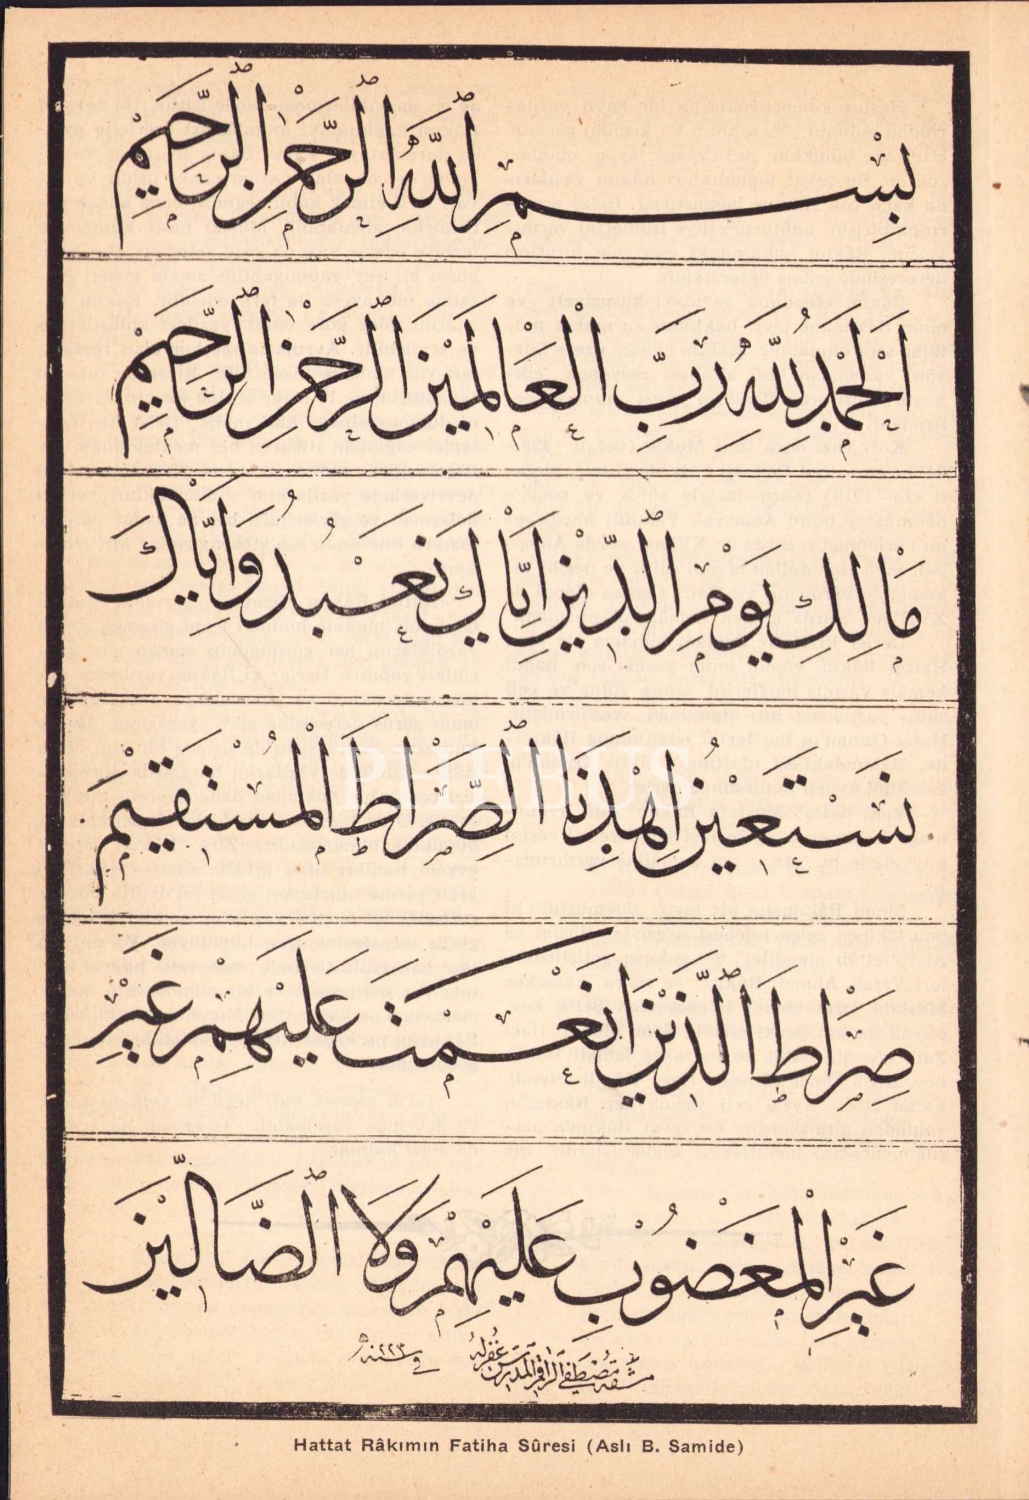 بِسْمِ اللّٰهِ الرَّحْمٰنِ الرَّحِيمِ
اَلْحَمْدُ لِلّٰهِ رَبِّ الْعَالَمِينَ الرَّحْمٰنِ الرَّحِيمِ
مَالِكِ يَوْمِ الدِّينِ اِيَّاكَ نَعْبُدُ وَاِيَّاكَ
نَسْتَعِينُ اِهْدِنَا الصِّرَاطَ الْمُسْتَقِيمَ
PHEBUS
صِرَاطَ الَّذِينَ اَنْعَمْتَ عَلَيْهِمْ غَيْرِ
غَيْرِ الْمَغْضُوبِ عَلَيْهِمْ وَلَا الضَّالِّينَ
مشقه مصطفى الراقم المدرس غفر له
في سنه ١٢٢٣
Hattat Râkımın Fatiha Sûresi (Aslı B. Samide)